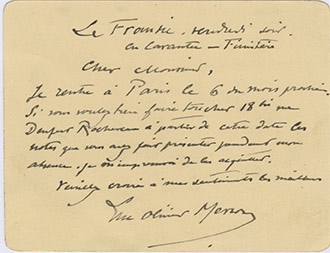 Le Fransic. vendredi soir
en Carantec - Finistère
Cher Monsieur,
Je rentre à Paris le 6 du mois prochain
Si vous voulez bien faire toucher 18 bis rue
Denfert Rochereau à partir de cette date les
notes que vous avez fait présenter pendant mon
absence. je m'empresserai de les acquitter.
Veuillez croire à mes sentiments les meilleurs
Luc Olivier Merson